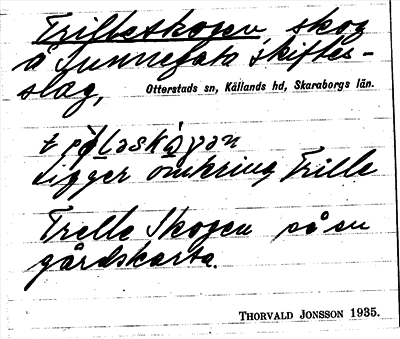 Trilleskogen, skog
å Sunnefala skiftes-
slag,
Otterstads sn, Kållands hd, Skaraborgs län.
Ligger omkring Trille
Trelle Skogen på en
gårdskarta.
THORVALD JONSSON 1935.